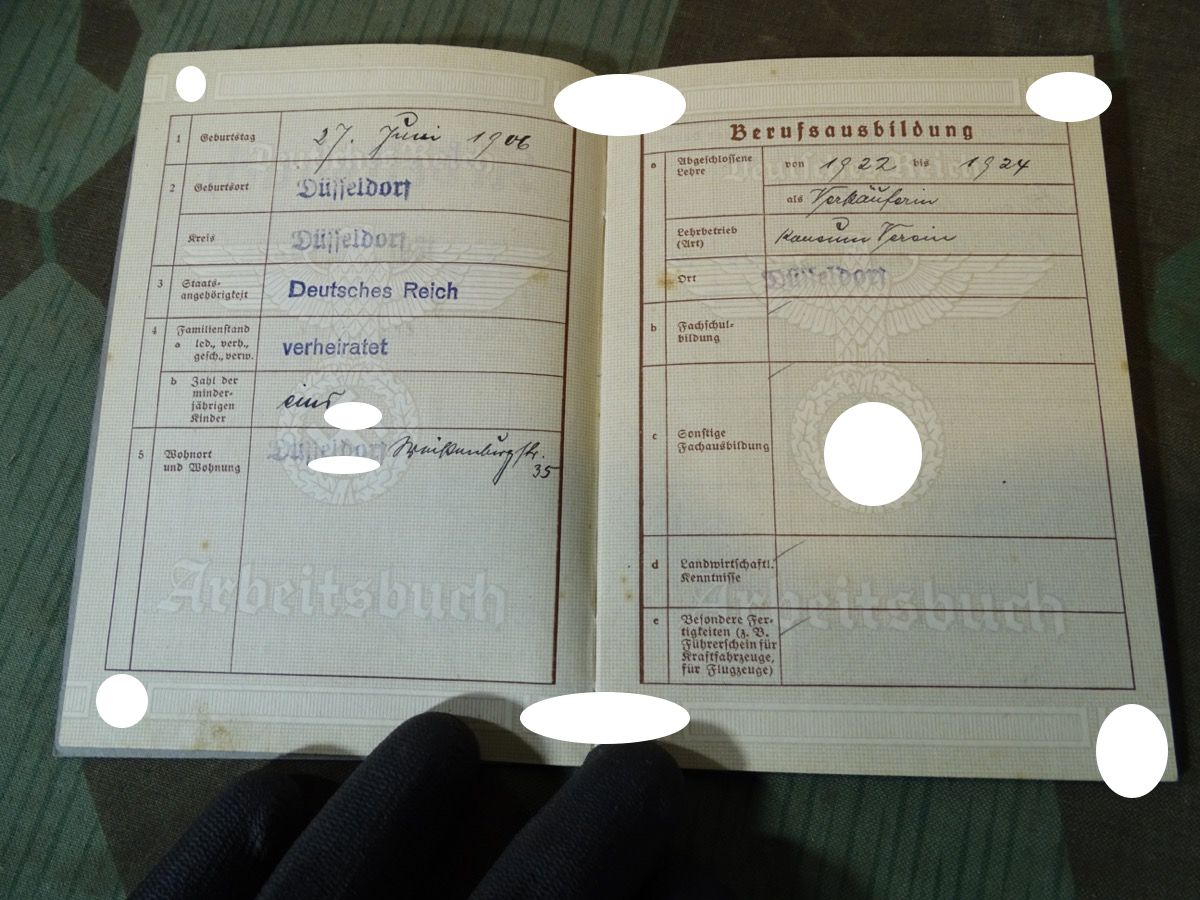 1 Geburtstag 27. Juni 1906
2 Geburtsort Düsseldorf
Kreis Düsseldorf
3 Staats-
angehörigkeit Deutsches Reich
4 Familienstand
a led., verh.,
gesch., verw. verheiratet
b Zahl der
minder-
jährigen
Kinder eins
5 Wohnort
und Wohnung Düsseldorf Weißenburgstr.
35
Arbeitsbuch
Berufsausbildung
a Abgeschlossene
Lehre von 1922 bis 1924
als Verkäuferin
Lehrbetrieb
(Art) Konsum Verein
Ort Düsseldorf
b Fachschul-
bildung
c Sonstige
Fachausbildung
d Landwirtschaftl.
Kenntnisse
e Besondere Fer-
tigkeiten (z. B.
Führerschein für
Kraftfahrzeuge,
für Flugzeuge)
Arbeitsbuch